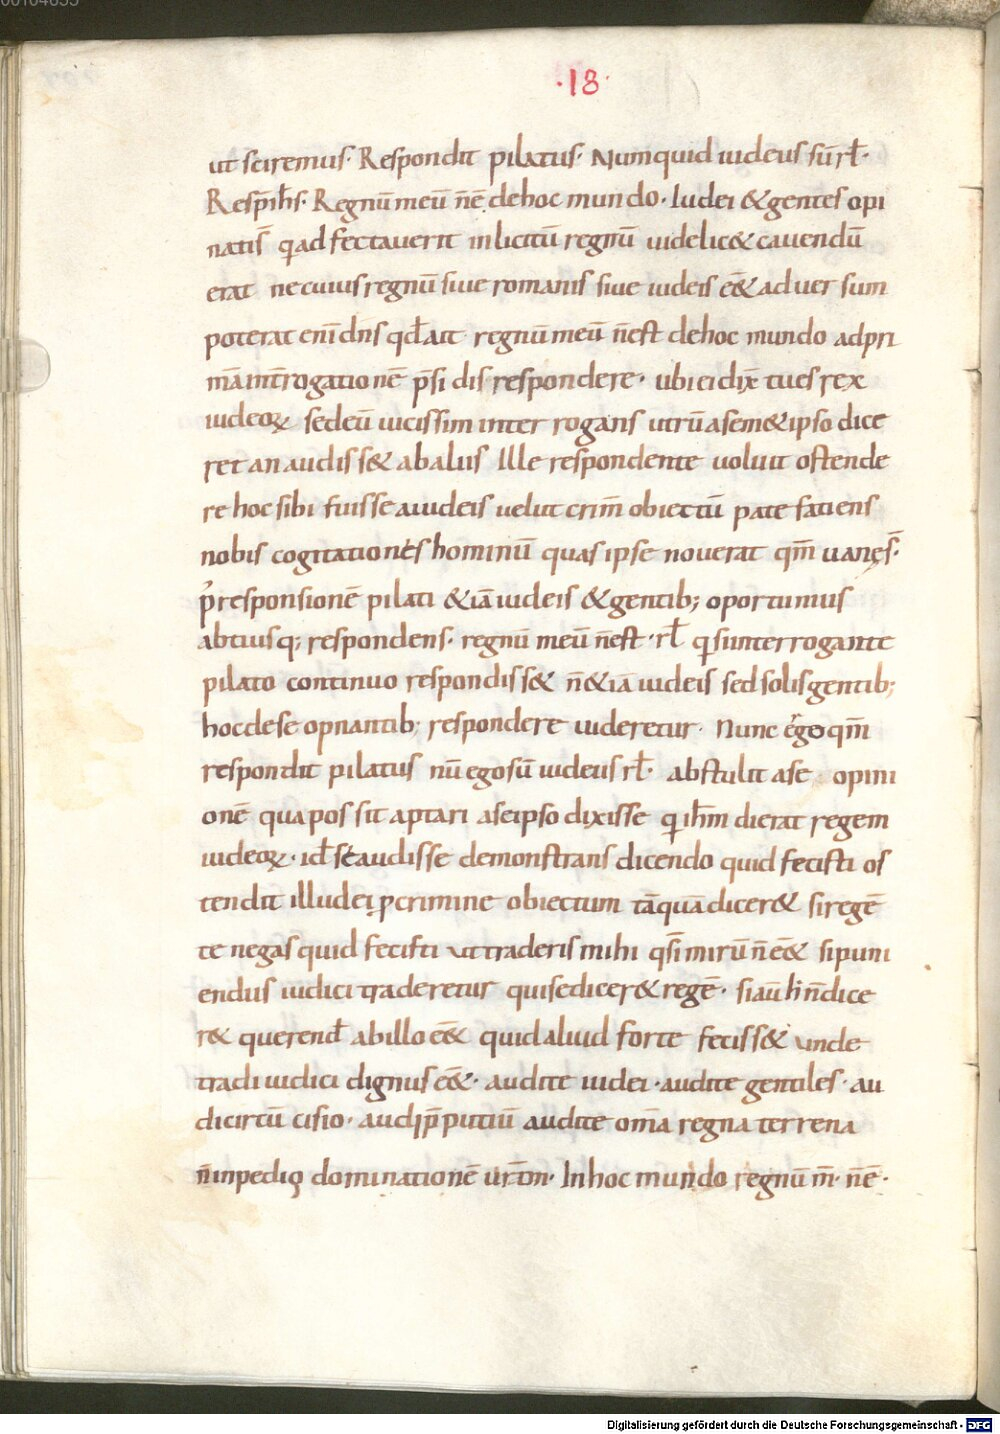 ·18·
ut sciremus· Respondit pilatus· Numquid iudeus sū rł·
Resp̄ ih̄s· Regnū meū n̄ ē dehoc mundo· Iudei &gentes opi
natis̄ qđ adfectauerit inlicitū regnū uidelic& cauendū
erat ne cuius regnū siue romanis siue iudeis ē& aduersum
poterat enī dn̄s qđ ait regnū meū n̄ est dehoc mundo adpri
mā int̄rogationē p̄sidis respondere· ubi ei dix̄ tu es rex
iudeoꝝ sed eū uicissim interrogans utrū asem&ipso dice
ret an audiss& abaliis Ille respondente uoluit ostende
re hoc sibi fuisse aiudeis uelut crim̄ obiectū patefatiens
nobis cogitationes hominū quas ipse nouerat qm̄ uanę s̄·
p̄ responsionē pilati &iā iudeis &gentib; oportunius
abtiusq; respondens· regnū meū n̄ est· rł qđ si interrogante
pilato continuo respondiss& n̄ &iā iudeis sed solis gentib;
hoc dese opnantib; respondere uideretur· Nunc ergo qm̄
respondit pilatus nū ego sū iudeus rł· abstulit ase opini
onē qua possit aptari aseipso dixisse qđ ih̄m dix̄erat regem
iudeoꝝ· iđ se audisse demonstrans dicendo quid fecisti os
tendit illud ei ꝓcrimine obiectum tāquā dicer& si regē
te negas quid fecisti ut traderis mihi qs̄i mirū n̄ ē& si puni
endus iudici traderetur qui se dicer& regē· si aū h̄ n̄ dice
r& querend̄ abillo ē& quid aliud forte feciss& unde
tradi iudici dignus ē&· audite iudei· audite gentiles· au
di circūcisio· audi p̄putiū audite om̄a regna terrena
n̄ inpedio dominationē ur̄am· In hoc mundo regnū m̄· n̄ ē·
Digitalisierung gefördert durch die Deutsche Forschungsgemeinschaft - DFG